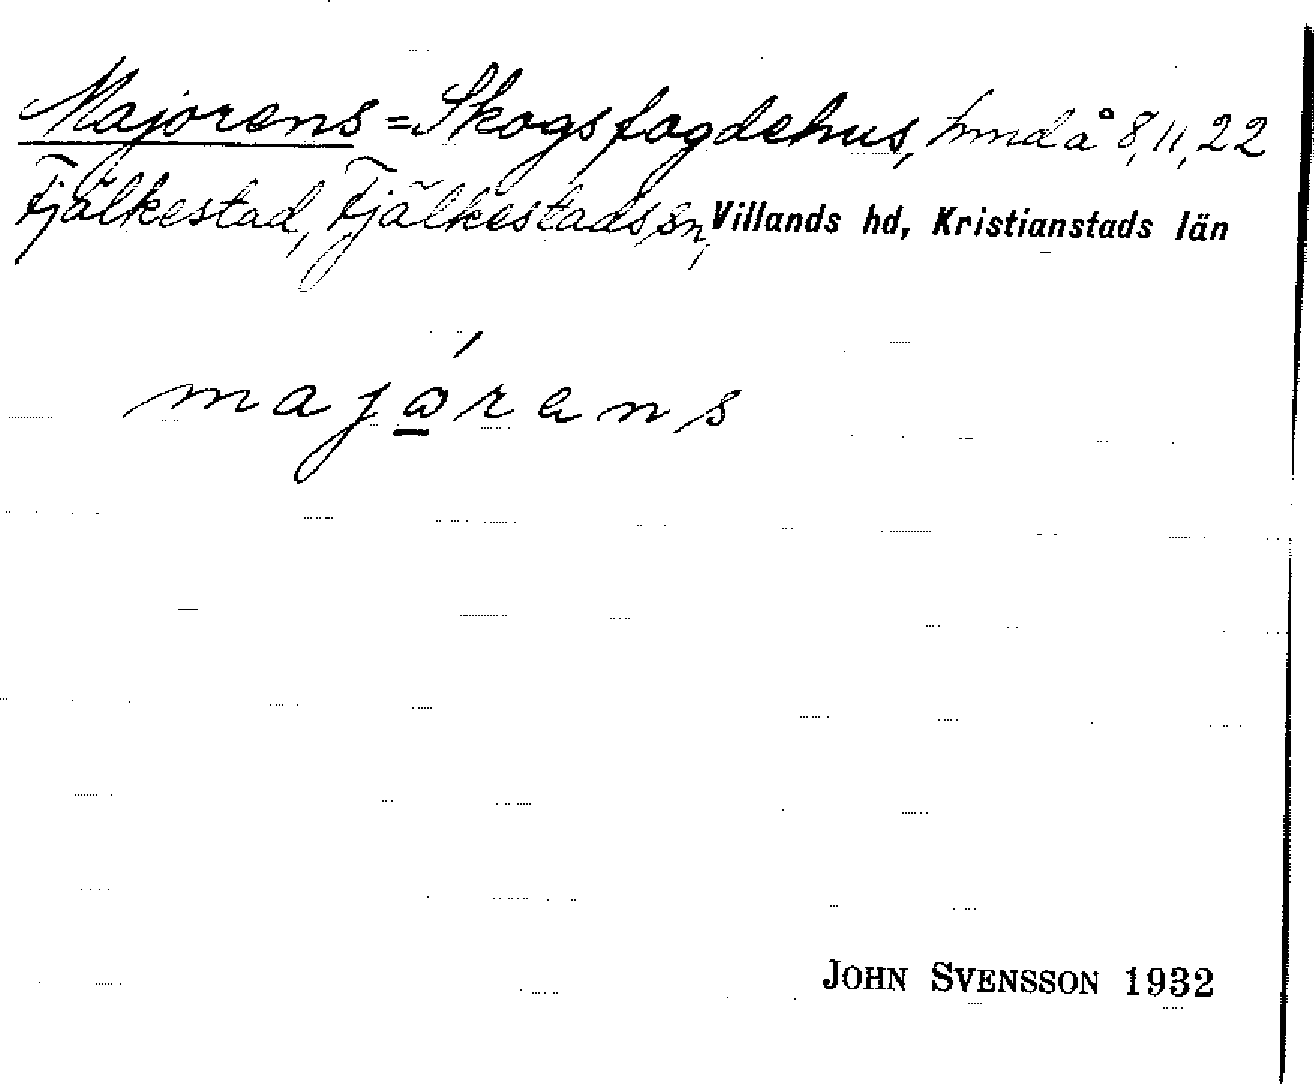 Majorens = Skogsfogdehus, hmd å 8,11,22
Fjälkestad, Fjälkestads sn, Villands hd, Kristianstads län
majǫ́rens
JOHN SVENSSON 1932